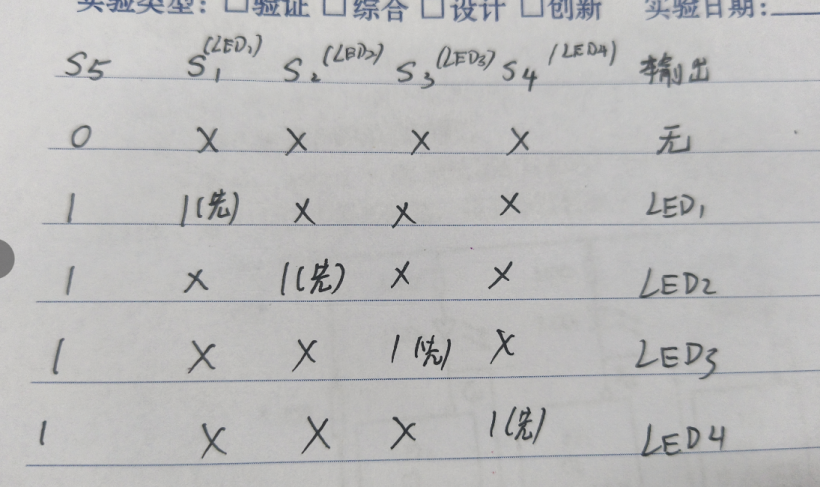 实验类型: □验证 □综合 □设计 □创新 实验日期:
S5 S₁(LED₁) S₂(LED₂) S₃(LED₃) S₄(LED4) 输出
0 X X X X 无
1 1(先) X X X LED₁
1 X 1(先) X X LED₂
1 X X 1(先) X LED₃
1 X X X 1(先) LED4